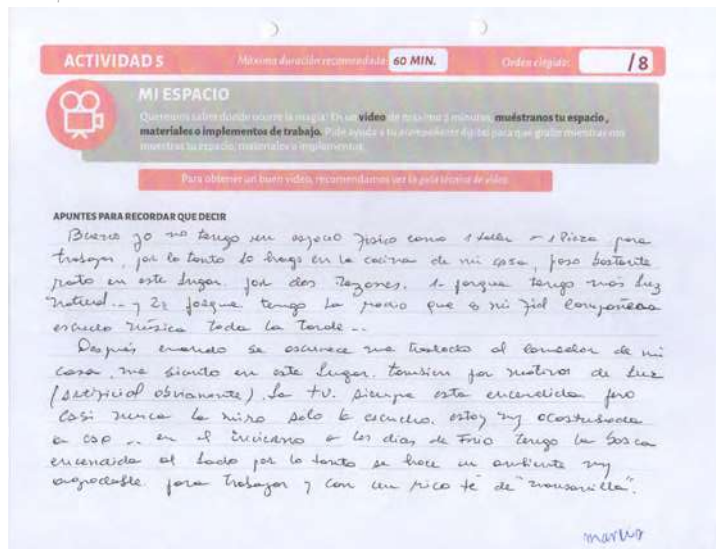 ACTIVIDAD 5 Máxima duración recomendada: 60 MIN. Orden elegido: /8
MI ESPACIO
Queremos saber dónde ocurre la magia. En un video de máximo 2 minutos, muéstranos tu espacio,
materiales o implementos de trabajo. Pide ayuda a tu acompañante digital para que grabe mientras nos
muestras tu espacio, materiales o implementos.
Para obtener un buen video, recomendamos ver la guía técnica de video.
APUNTES PARA RECORDAR QUE DECIR
Bueno yo no tengo un espacio físico como 1 taller o 1 Pieza para
trabajar, por lo tanto lo hago en la cocina de mi casa, paso bastante
rato en este lugar. por dos razones. 1- porque tengo más luz
natural.. y 2: porque tengo la radio que es mi fiel compañera
escucho música toda la tarde..
Después cuando se oscurece me traslado al comedor de mi
casa, me siento en este lugar. tambien por motivos de luz
(artificial obviamente). La tv. siempre esta encendida pero
casi nunca la miro solo la escucho. estoy muy acostumbrada
a eso .. en el invierno o los días de Frio tengo la bosca
encendida al lado por lo tanto se hace un ambiente muy
agradable. para trabajar y con un rico té de "manzanilla".